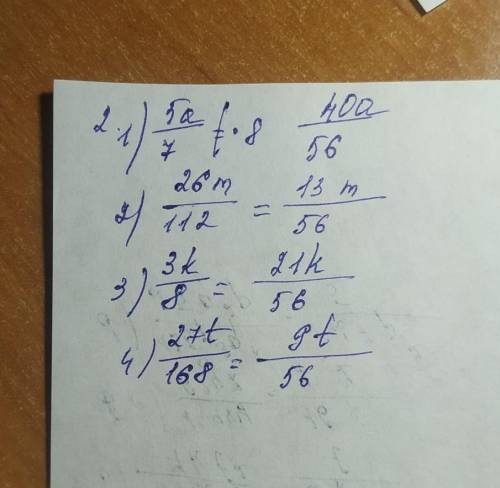 2. 1) 5a/7 = · 8 40a/56
2) 26m/112 = 13m/56
3) 3k/8 = 21k/56
4) 27t/168 = 9t/56